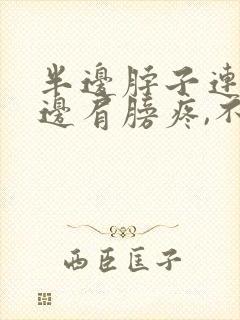 半邊脖子連
邊肩膀疼,不
西臣匡子